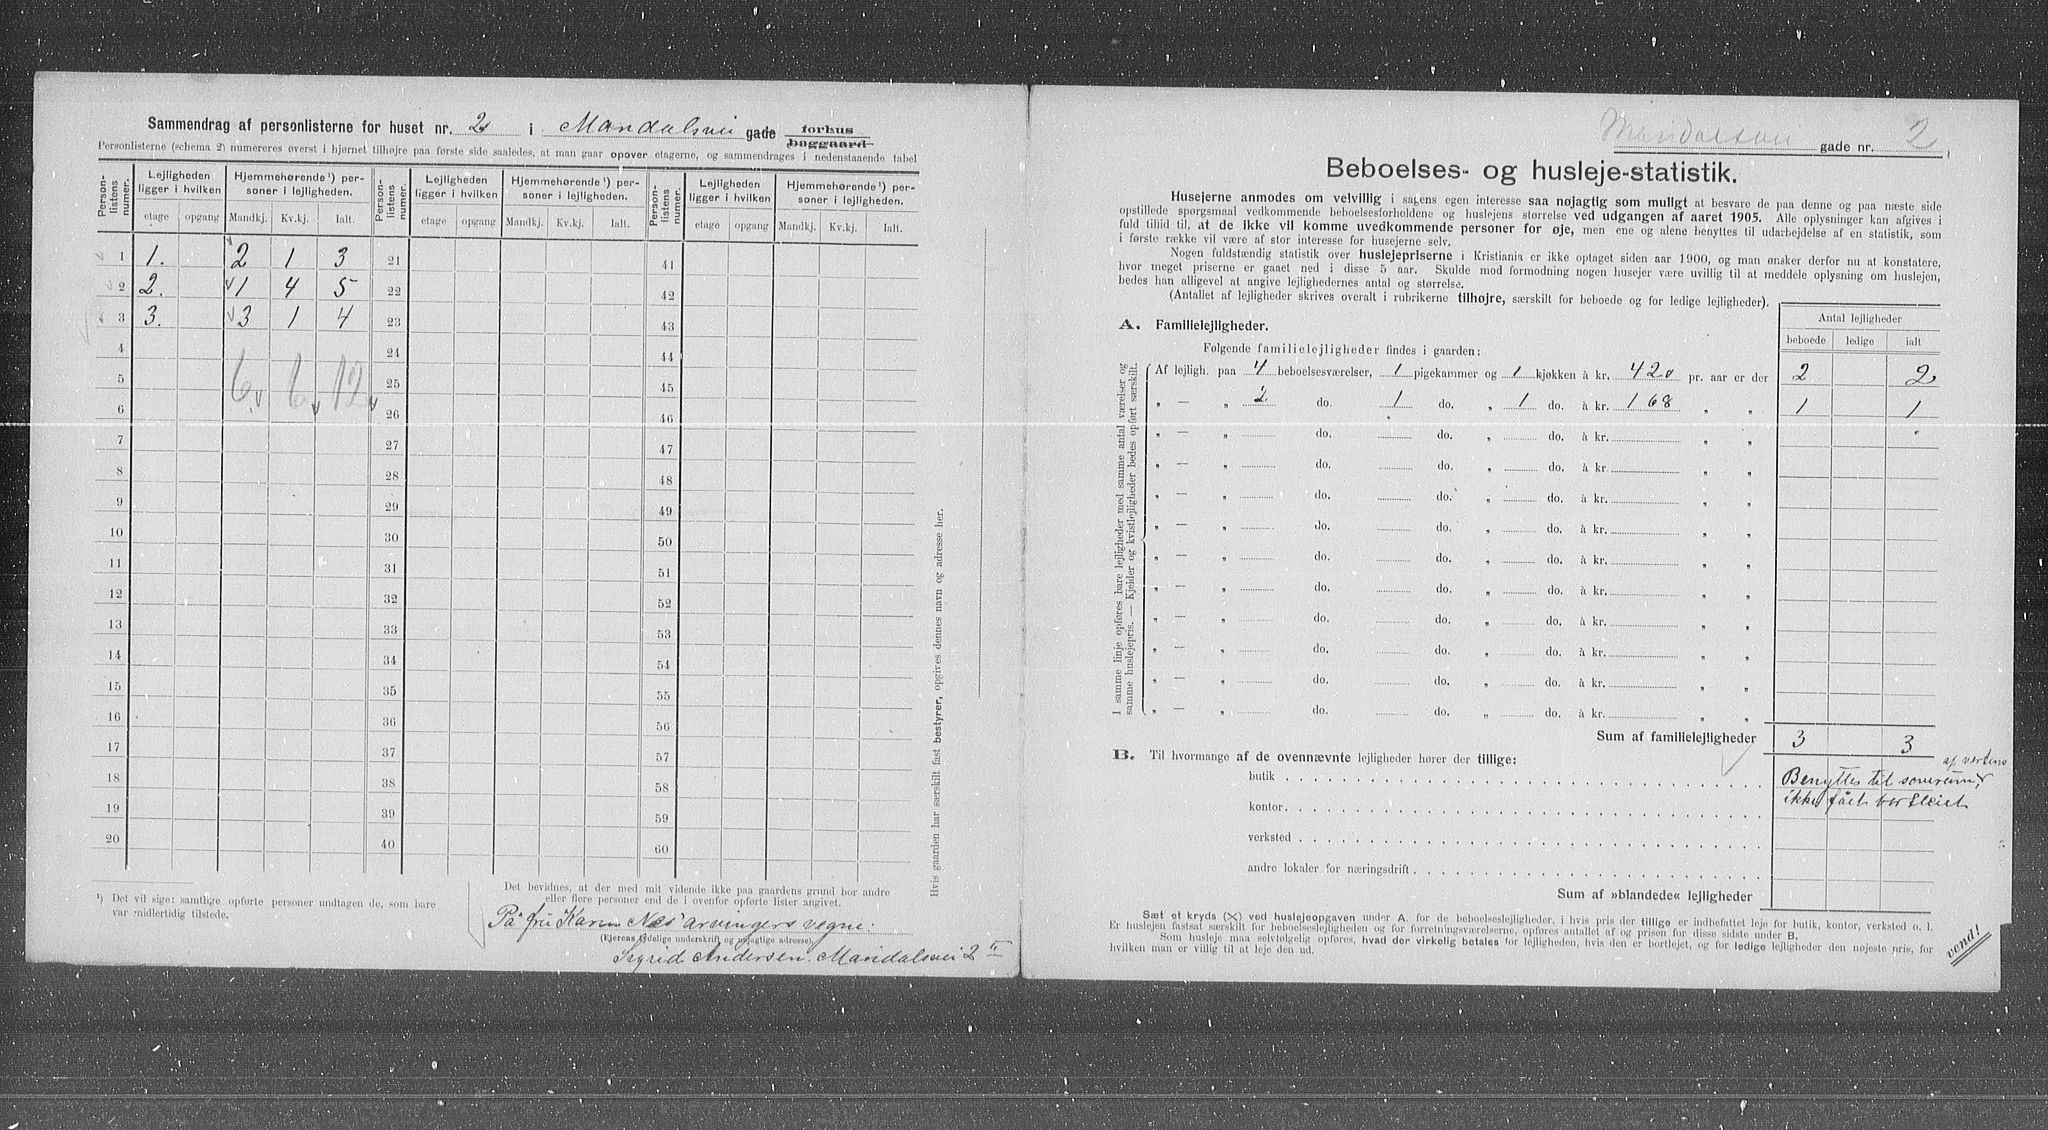 Sammendrag af personlisterne for huset nr. 2 i Mandalsvei gade forhus baggaard
Personlisterne (schema 2) numereres øverst i hjørnet tilhøjre paa første side saaledes, at man gaar opover etagerne, og sammendrages i nedenstaaende tabel
Person-listens numer. Lejligheden ligger i hvilken Hjemmehørende ¹) personer i lejligheden. Person-listens numer. Lejligheden ligger i hvilken Hjemmehørende ¹) personer i lejligheden. Person-listens numer. Lejligheden ligger i hvilken Hjemmehørende ¹) personer i lejligheden.
etage opgang Mandkj. Kv.kj. Ialt. etage opgang Mandkj. Kv.kj. Ialt. etage opgang Mandkj. Kv.kj. Ialt.
1 1. 2 1 3 21 41
2 2. 1 4 5 22 42
3 3. 3 1 4 23 43
4 24 44
5 6 6 12 25 45
6 26 46
7 27 47
8 28 48
9 29 49
10 30 50
11 31 51
12 32 52
13 33 53
14 34 54
15 35 55
16 36 56
17 37 57
18 38 58
19 39 59
20 40 60
¹) Det vil sige: samtlige opførte personer undtagen de, som bare
var midlertidig tilstede.
Det bevidnes, at der med mit vidende ikke paa gaardens grund bor andre
eller flere personer end de i ovenfor opførte lister angivet.
På fru Karen Næs' arvingers vegne:
(Ejerens tydelige underskrift og nøjagtige adresse).
Sigrid Andersen. Mandalsvei 2 II
Hvis gaarden har særskilt fast bestyrer, opgives dennes navn og adresse her.
Mandalsvei gade nr. 2
Beboelses- og husleje-statistik.
Husejerne anmodes om velvillig i sagens egen interesse saa nøjagtig som muligt at besvare de paa denne og paa næste side
opstillede spørgsmaal vedkommende beboelsesforholdene og huslejens størrelse ved udgangen af aaret 1905. Alle oplysninger kan afgives i
fuld tillid til, at de ikke vil komme uvedkommende personer for øje, men ene og alene benyttes til udarbejdelse af en statistik, som
i første række vil være af stor interesse for husejerne selv.
Nogen fuldstændig statistik over huslejepriserne i Kristiania er ikke optaget siden aar 1900, og man ønsker derfor nu at konstatere,
hvor meget priserne er gaaet ned i disse 5 aar. Skulde mod formodning nogen husejer være uvillig til at meddele oplysning om huslejen,
bedes han alligevel at angive lejlighedernes antal og størrelse.
(Antallet af lejligheder skrives overalt i rubrikerne tilhøjre, særskilt for beboede og for ledige lejligheder).
A. Familielejligheder.
Antal lejligheder
beboede ledige ialt
Følgende familielejligheder findes i gaarden:
Af lejligh. paa 4 beboelsesværelser, 1 pigekammer og 1 kjøkken à kr. 420 pr. aar er der 2 2
„ — „ 2 do. 1 do. „ 1 do. à kr. 168 „ „ 1 1
„ — „ do. do. „ do. à kr. „ „
„ — „ do. do. „ do. à kr. „ „
„ — „ do. do. „ do. à kr. „ „
„ — „ do. do. „ do. à kr. „ „
„ — „ do. do. „ do. à kr. „ „
„ — „ do. do. „ do. à kr. „ „
„ — „ do. do. „ do. à kr. „ „
„ — „ do. do. „ do. à kr. „ „
„ — „ do. do. „ do. à kr. „ „
„ — „ do. do. „ do. à kr. „ „
I samme linje opføres bare lejligheder med samme antal værelser og
samme huslejepris. — Kjelder og kvistlejligheder bedes opført særskilt.
Sum af familielejligheder 3 3
B. Til hvormange af de ovennævnte lejligheder hører der tillige:
butik
kontor
verksted
andre lokaler for næringsdrift
af vertens
Benyttes til soverum,
ikke fået
Sum af »blandede« lejligheder
Sæt et kryds (X) ved huslejeopgaven under A. for de beboelseslejligheder, i hvis pris der tillige er indbefattet leje for butik, kontor, verksted o. l.
Er huslejen fastsat særskilt for beboelseslejligheden og for forretningsværelserne, opføres antallet af og prisen for disse sidste under B.
Som husleje maa selvfølgelig opføres, hvad der virkelig betales for lejligheden, hvis den er bortlejet, og for ledige lejligheder den nøjeste pris, for
hvilken man er villig til at leje den ud.
vend!